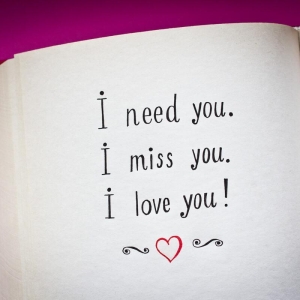 i need you.
i miss you.
i love you!